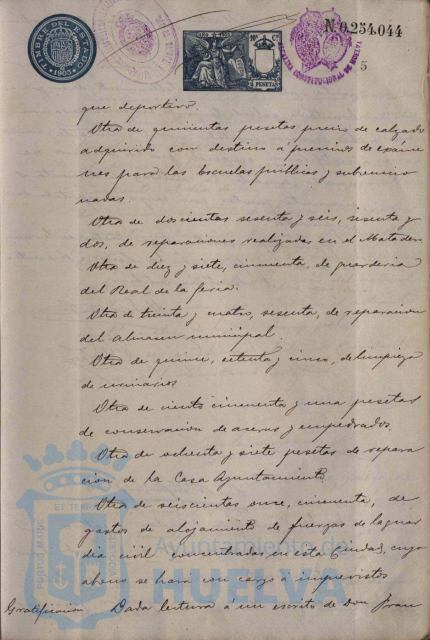 TIMBRE DEL ESTADO
1905
AÑO DE 1905
PESETAS
Nº 0.254.044
ALCALDIA CONSTITUCIONAL DE HUELVA
5
que deportivo.
Otra de quinientas pesetas precio de calzado
adquirido con destino á premios de exáme
nes para las Escuelas públicas y subvencio
nadas.
Otra de doscientas sesenta y seis, sesenta y
dos, de reparaciones realizadas en el Matadero
Otra de diez y siete, cincuenta, de guarderia
del Real de la feria.
Otra de treinta y cuatro, sesenta, de reparacion
del almacen municipal.
Otra de quince, setenta y cinco, de limpieza
de urinarios
Otra de ciento cincuenta y una pesetas
de conservacion de aceras y empedrados.
Otra de ochenta y siete pesetas de repara
cion de la Casa Ayuntamiento
Otra de seiscientas once, cincuenta, de
gastos de alojamiento de fuerzas de la guar
dia civil concentradas en esta Ciudad, cuyo
abono se hará con cargo á imprevistos
Gratificacion. Dada lectura á un escrito de Don Fran
Ayuntamiento de
HUELVA